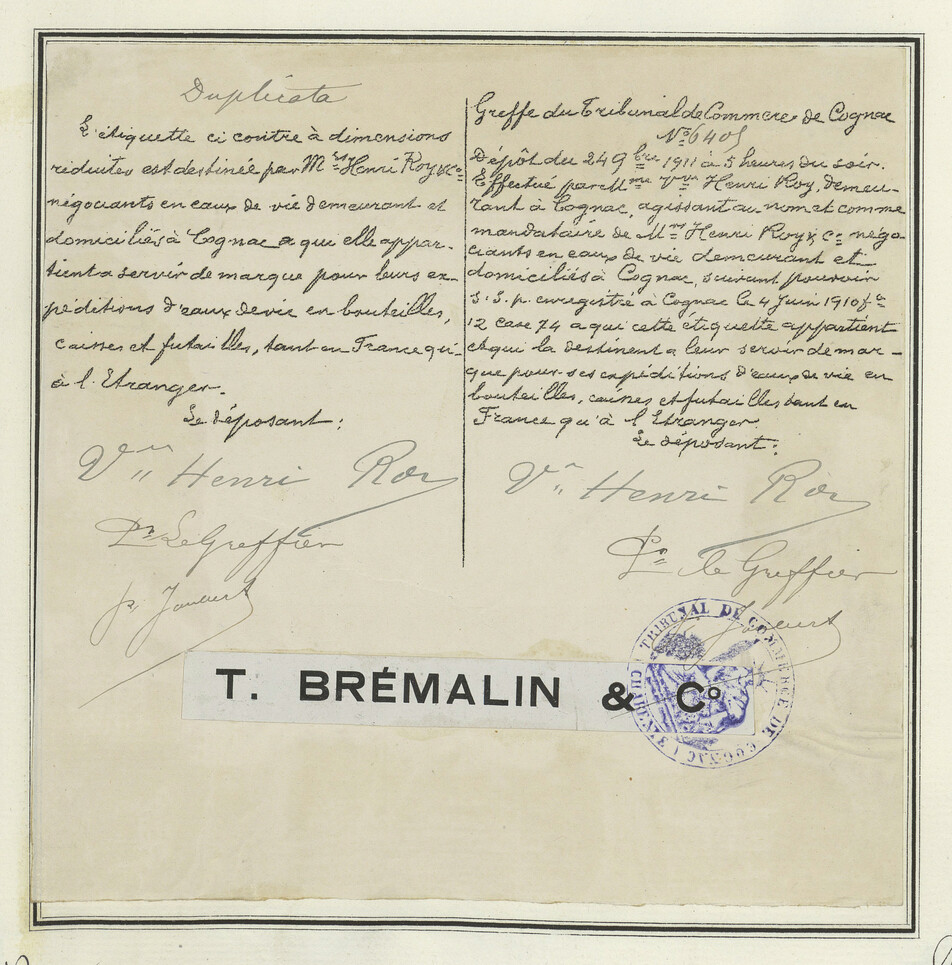 Duplicata
L'étiquette ci contre à dimensions
réduites est destinée par M.rs Henri Roy & Co
négociants en eaux de vie demeurant et
domiciliés à Cognac a qui elle appar-
tient a servir de marque pour leurs ex-
péditions d'eaux de vie en bouteilles,
caisses et futailles, tant en France qu'-
à l'Etranger.
Le déposant:
Vve Henri Roy
Pr Le Greffier
Greffe du Tribunal de Commerce de Cognac
No 6405
Dépôt du 24 9bre 1911 à 5 heures du soir.
Effectué par Mme Vve Henri Roy, demeu-
rant à Cognac, agissant au nom et comme
mandataire de Mrs Henri Roy & Co négo-
ciants en eaux de vie demeurant et
domiciliés à Cognac, suivant pouvoir
S. S. p. enregistré à Cognac le 4 Juin 1910 fo
12 case 74 a qui cette étiquette appartient
et qui la destinent a leur servir de mar-
que pour ses expéditions d'eaux de vie en
bouteilles, caisses et futailles tant en
France qu'à l'Etranger.
Le déposant:
Vve Henri Roy
Pr le Greffier
T. BRÉMALIN & Co
TRIBUNAL DE COMMERCE DE COGNAC (CHARENTE)